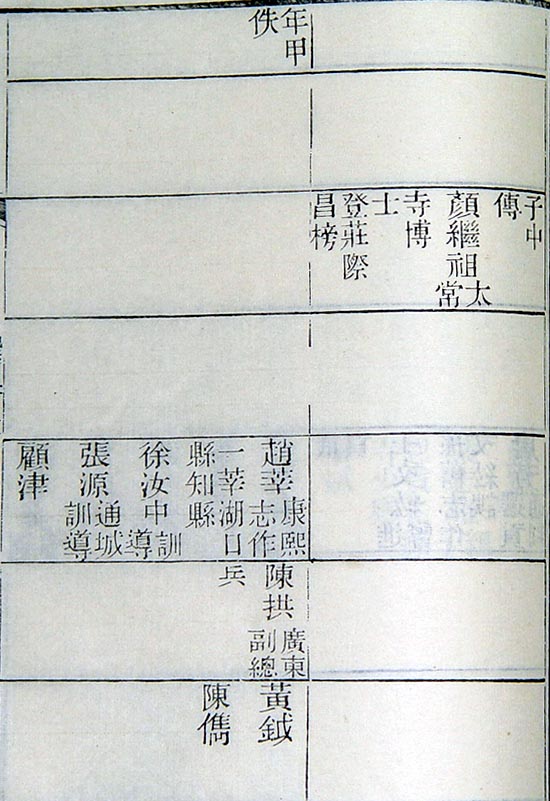 年甲
佚
子中
傳
顏繼祖太
常
寺博
士
登莊際
昌榜
趙莘康熙
志作
一莘湖口
縣知縣
徐汝中訓
導
張源通城
訓導
顧津
陳拱廣東
副總
兵
黃鉞
陳儁